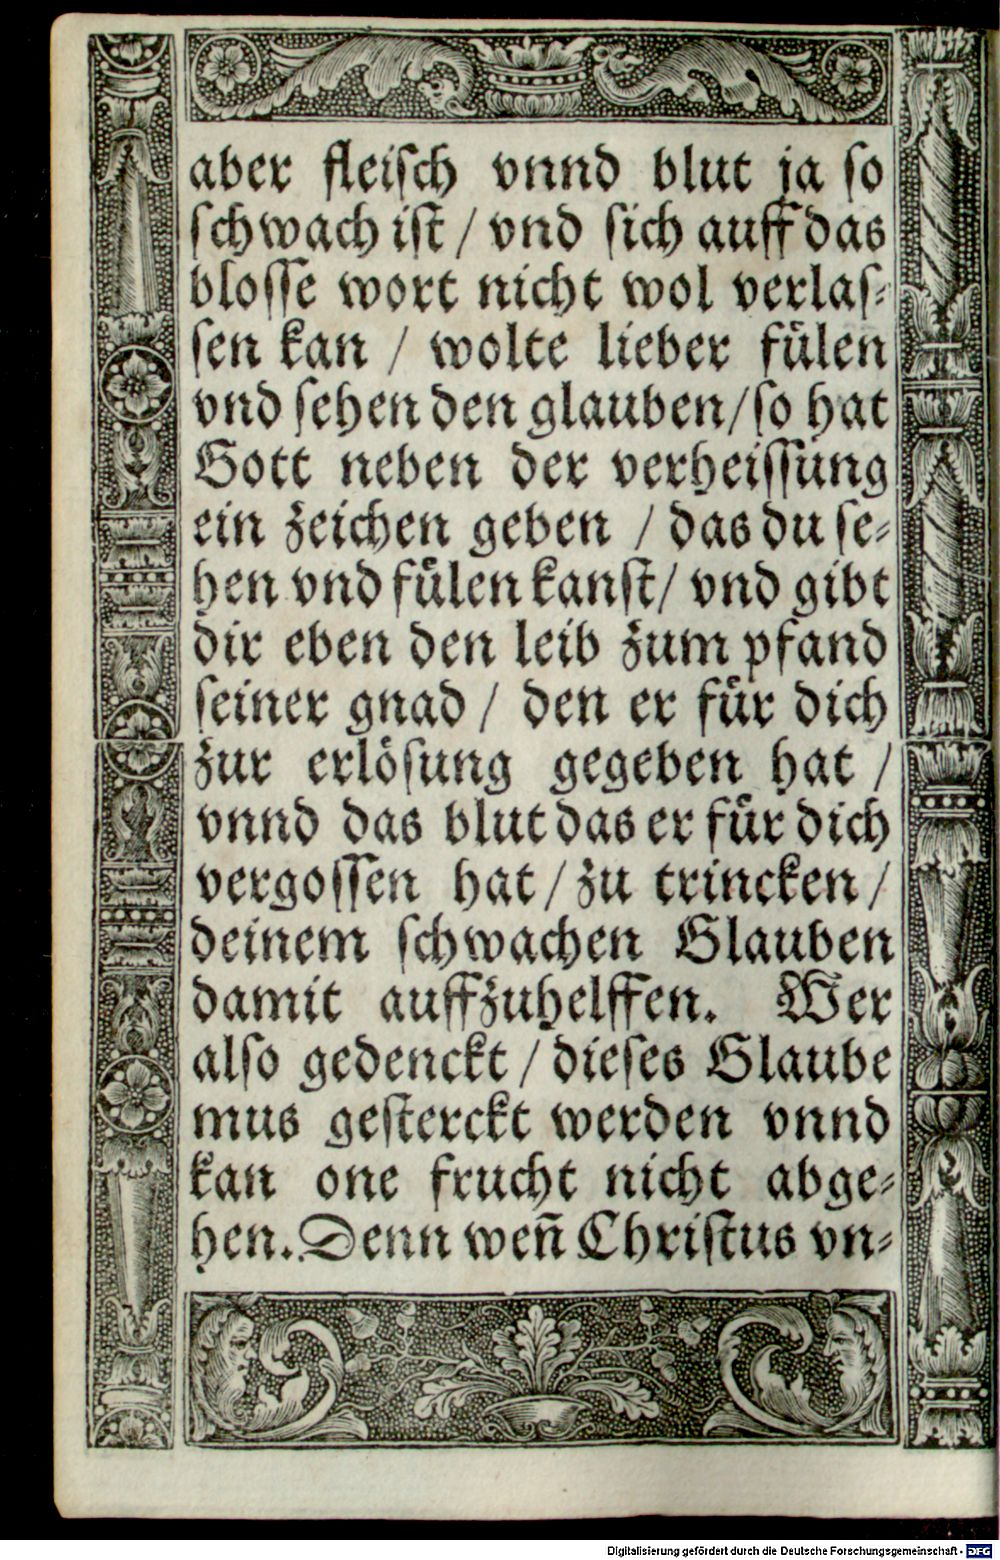 aber fleisch vnnd blut ja so
schwach ist / vnd sich auff das
blosse wort nicht wol verlas⸗
sen kan / wolte lieber fülen
vnd sehen den glauben/so hat
Gott neben der verheissung
ein zeichen geben / das du se⸗
hen vnd fülen kanst/ vnd gibt
dir eben den leib zum pfand
seiner gnad / den er für dich
zur erlösung gegeben hat /
vnnd das blut das er für dich
vergossen hat / zu trincken /
deinem schwachen Glauben
damit auffzuhelffen. Wer
also gedenckt / dieses Glaube
mus gesterckt werden vnnd
kan one frucht nicht abge⸗
hen. Denn weñ Christus vn⸗
Digitalisierung gefördert durch die Deutsche Forschungsgemeinschaft - DFG